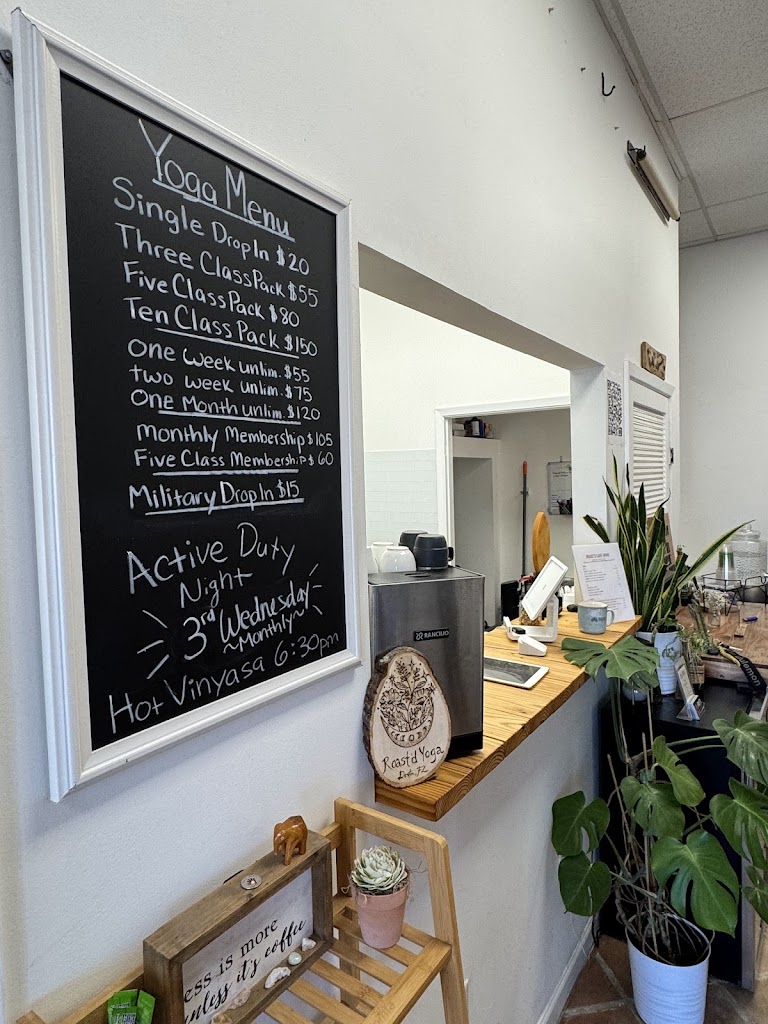 Yoga Menu
Single Drop In $20
Three Class Pack $55
Five Class Pack $80
Ten Class Pack $150
One week unlim. $55
two week unlim. $75
One Month unlim. $120
Monthly Membership $105
Five Class Membership $60
Military Drop In $15
Active Duty
Night
3rd Wednesday
~Monthly~
Hot Vinyasa 6:30pm
RANCILIO
Roast'd Yoga
ess is more
unless it's coffee